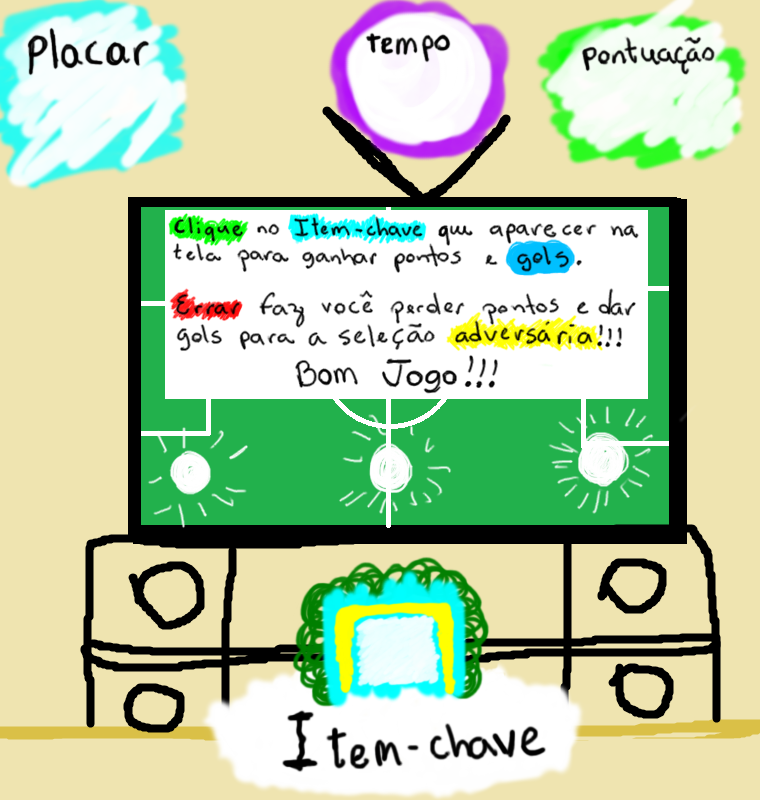 Placar
tempo
Pontuação
Clique no Item-chave que aparecer na
tela para ganhar pontos e gols.
Errar faz você perder pontos e dar
gols para a seleção adversária!!!
Bom Jogo!!!
Item-chave